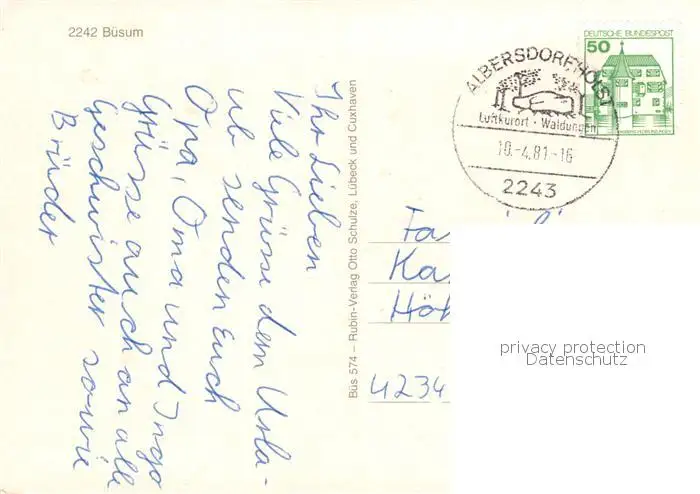 2242 Büsum
Ihr Lieben
Viele Grüsse dem Urla-
ub senden Euch
Opa, Oma und Ingo
Grüsse auch an alle
Geschwister sowie
Brüder
Büs 574 – Rubin-Verlag Otto Schulze, Lübeck und Cuxhaven
ALBERSDORF HOLST
Luftkurort · Waldungen
10.-4.81-16
2243
DEUTSCHE BUNDESPOST
50
Fa
Ka
Höh
4234
privacy protection
Datenschutz